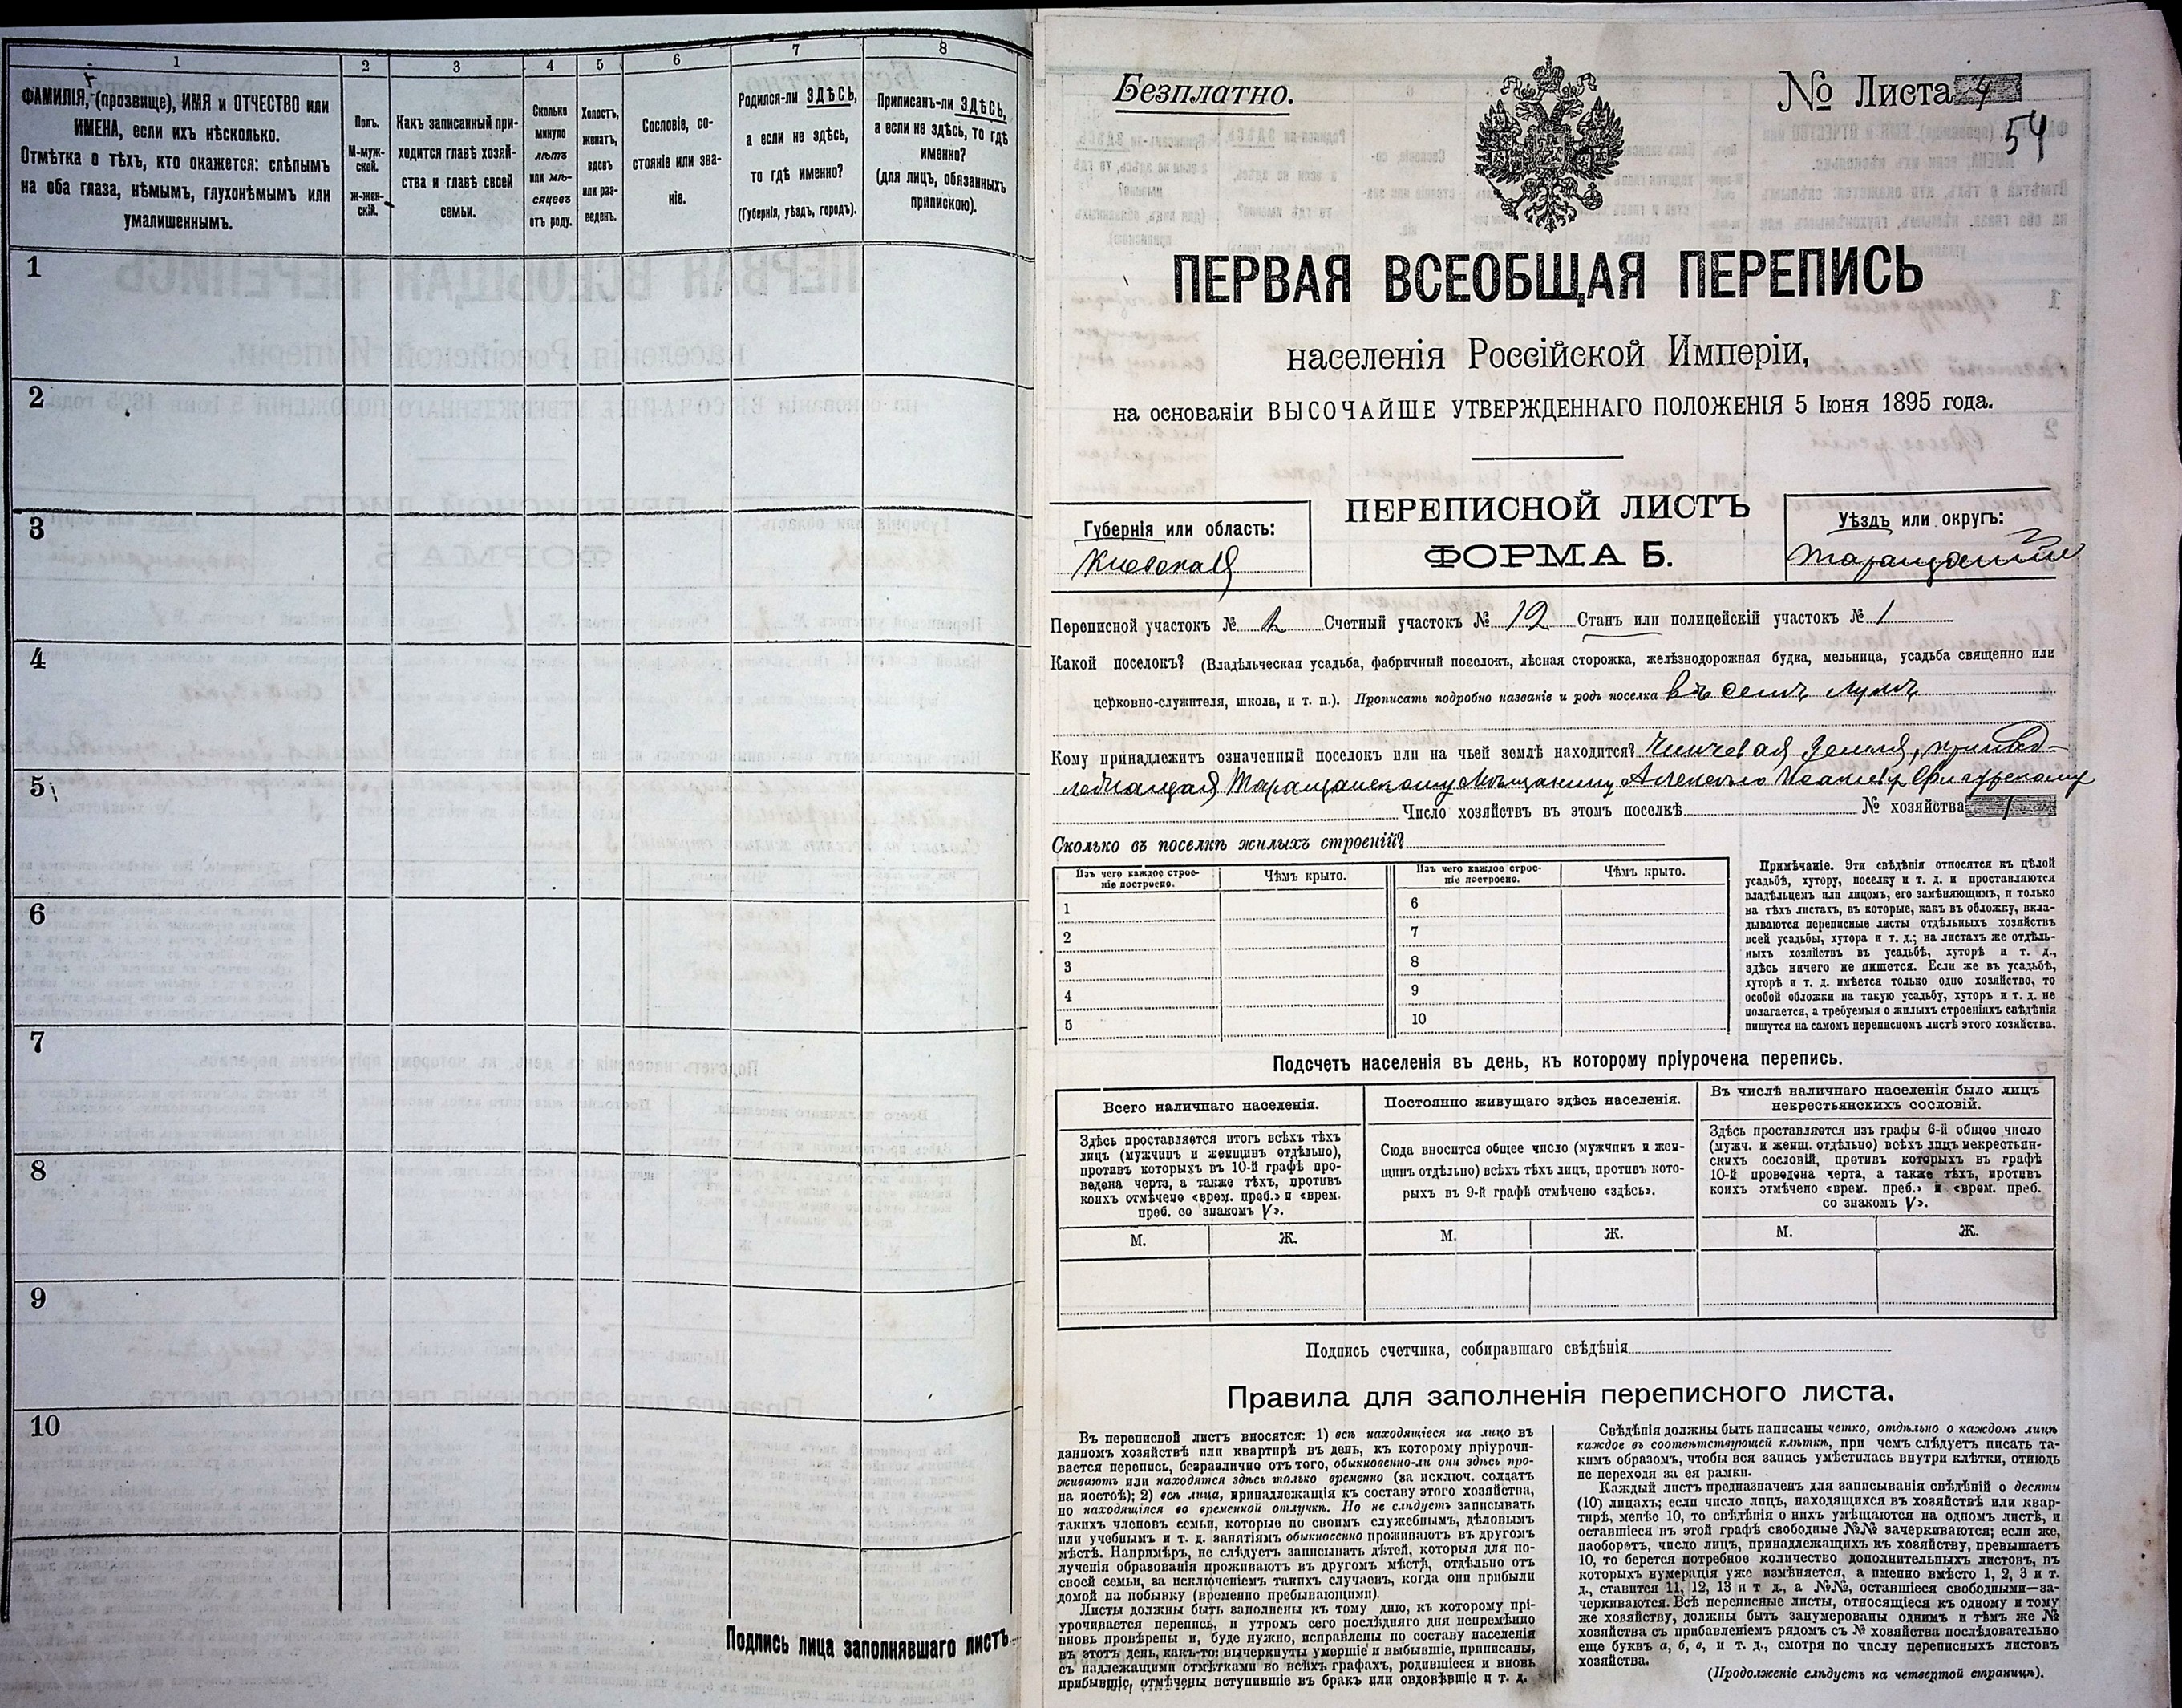 1
2
3
4
5
6
7
8
ФАМИЛІЯ, (прозвище), ИМЯ и ОТЧЕСТВО или
ИМЕНА, если ихъ нѣсколько.
Отмѣтка о тѣхъ, кто окажется: слѣпымъ
на оба глаза, нѣмымъ, глухонѣмымъ или
умалишеннымъ.
Полъ.
М-муж-
ской.
ж-жен-
скій.
Какъ записанный при-
ходится главѣ хозяй-
ства и главѣ своей
семьи.
Сколько
минуло
лѣтъ
или мѣ-
сяцевъ
отъ роду.
Холостъ,
женатъ,
вдовъ
или раз-
веденъ.
Сословіе, со-
стояніе или зва-
ніе.
Родился-ли ЗДѢСЬ,
а если не здѣсь,
то гдѣ именно?
(Губернія, уѣздъ, городъ).
Приписанъ-ли ЗДѢСЬ,
а если не здѣсь, то гдѣ
именно?
(для лицъ, обязанныхъ
припискою).
1
2
3
4
5
6
7
8
9
10
Подпись лица заполнявшаго листъ
Безплатно.
№ Листа 9
54
ПЕРВАЯ ВСЕОБЩАЯ ПЕРЕПИСЬ
населенія Россійской Имперіи,
на основаніи ВЫСОЧАЙШЕ УТВЕРЖДЕННАГО ПОЛОЖЕНІЯ 5 Іюня 1895 года.
ПЕРЕПИСНОЙ ЛИСТЪ
ФОРМА Б.
Губернія или область:
Кіевская
Уѣздъ или округъ:
Таращанскій
Переписной участокъ № 2 Счетный участокъ № 12 Станъ или полицейскій участокъ № 1
Какой поселокъ? (Владѣльческая усадьба, фабричный поселокъ, лѣсная сторожка, желѣзнодорожная будка, мельница, усадьба священно или
церковно-служителя, школа, и т. п.). Прописать подробно названіе и родъ поселка въ селѣ
Кому принадлежитъ означенный поселокъ или на чьей землѣ находится? Чиншевая земля, принад-
лежащая Таращанскому мѣщанину Алексѣю Исаеву Фигурскому
Число хозяйствъ въ этомъ поселкѣ № хозяйства 1
Сколько въ поселкѣ жилыхъ строеній?
Изъ чего каждое строе-
ніе построено.
Чѣмъ крыто.
Изъ чего каждое строе-
ніе построено.
Чѣмъ крыто.
1
6
2
7
3
8
4
9
5
10
Примѣчаніе. Эти свѣдѣнія относятся къ цѣлой
усадьбѣ, хутору, поселку и т. д. и проставляются
владѣльцемъ или лицомъ, его замѣняющимъ, и только
на тѣхъ листахъ, въ которые, какъ въ обложку, вкла-
дываются переписные листы отдѣльныхъ хозяйствъ
всей усадьбы, хутора и т. д.; на листахъ же отдѣль-
ныхъ хозяйствъ въ усадьбѣ, хуторѣ и т. д.,
здѣсь ничего не пишется. Если же въ усадьбѣ,
хуторѣ и т. д. имѣется только одно хозяйство, то
особой обложки на такую усадьбу, хуторъ и т. д. не
полагается, а требуемыя о жилыхъ строеніяхъ свѣдѣнія
пишутся на самомъ переписномъ листѣ этого хозяйства.
Подсчетъ населенія въ день, къ которому пріурочена перепись.
Всего наличнаго населенія.
Здѣсь проставляется итогъ всѣхъ тѣхъ
лицъ (мужчинъ и женщинъ отдѣльно),
противъ которыхъ въ 10-й графѣ про-
ведена черта, а также тѣхъ, противъ
коихъ отмѣчено «врем. преб.» и «врем.
преб. со знакомъ V».
М. Ж.
Постоянно живущаго здѣсь населенія.
Сюда вносится общее число (мужчинъ и жен-
щинъ отдѣльно) всѣхъ тѣхъ лицъ, противъ кото-
рыхъ въ 9-й графѣ отмѣчено «здѣсь».
М. Ж.
Въ числѣ наличнаго населенія было лицъ
некрестьянскихъ сословій.
Здѣсь проставляется изъ графы 6-й общее число
(мужч. и женщ. отдѣльно) всѣхъ лицъ некрестьян-
скихъ сословій, противъ которыхъ въ графѣ
10-й проведена черта, а также тѣхъ, противъ
коихъ отмѣчено «врем. преб.» и «врем. преб.
со знакомъ V».
М. Ж.
Подпись счетчика, собиравшаго свѣдѣнія
Правила для заполненія переписного листа.
Въ переписной листъ вносятся: 1) всѣ находящіеся на лицо въ
данномъ хозяйствѣ или квартирѣ въ день, къ которому пріурочи-
вается перепись, безразлично отъ того, обыкновенно-ли они здѣсь про-
живаютъ или находятся здѣсь только временно (за исключ. солдатъ
на постоѣ); 2) всѣ лица, принадлежащія къ составу этого хозяйства,
но находящіяся во временной отлучкѣ. Но не слѣдуетъ записывать
такихъ членовъ семьи, которые по своимъ служебнымъ, дѣловымъ
или учебнымъ и т. д. занятіямъ обыкновенно проживаютъ въ другомъ
мѣстѣ. Напримѣръ, не слѣдуетъ записывать дѣтей, которыя для по-
лученія образованія проживаютъ въ другомъ мѣстѣ, отдѣльно отъ
своей семьи, за исключеніемъ такихъ случаевъ, когда они прибыли
домой на побывку (временно пребывающими).
Листы должны быть заполнены къ тому дню, къ которому прі-
урочивается перепись, и утромъ сего послѣдняго дня непремѣнно
вновь провѣрены и, буде нужно, исправлены по составу населенія
въ этотъ день, какъ-то: вычеркнуты умершіе и выбывшіе, приписаны,
съ надлежащими отмѣтками во всѣхъ графахъ, родившіеся и вновь
прибывшіе, отмѣчены вступившіе въ бракъ или овдовѣвшіе и т. д.
Свѣдѣнія должны быть написаны четко, отдѣльно о каждомъ лицѣ
каждое въ соотвѣтствующей клѣткѣ, при чемъ слѣдуетъ писать та-
кимъ образомъ, чтобы вся запись умѣстилась внутри клѣтки, отнюдь
не переходя за ея рамки.
Каждый листъ предназначенъ для записыванія свѣдѣній о десяти
(10) лицахъ; если число лицъ, находящихся въ хозяйствѣ или квар-
тирѣ, менѣе 10, то свѣдѣнія о нихъ умѣщаются на одномъ листѣ, и
оставшіеся въ этой графѣ свободные №№ зачеркиваются; если же,
наоборотъ, число лицъ, принадлежащихъ къ хозяйству, превышаетъ
10, то берется потребное количество дополнительныхъ листовъ, въ
которыхъ нумерація уже измѣняется, а именно вмѣсто 1, 2, 3 и т.
д., ставится 11, 12, 13 и т д., а №№, оставшіеся свободными—за-
черкиваются. Всѣ переписные листы, относящіеся къ одному и тому
же хозяйству, должны быть занумерованы однимъ и тѣмъ же №
хозяйства съ прибавленіемъ рядомъ съ № хозяйства послѣдовательно
еще буквъ а, б, в, и т. д., смотря по числу переписныхъ листовъ
хозяйства.
(Продолженіе слѣдуетъ на четвертой страницѣ).